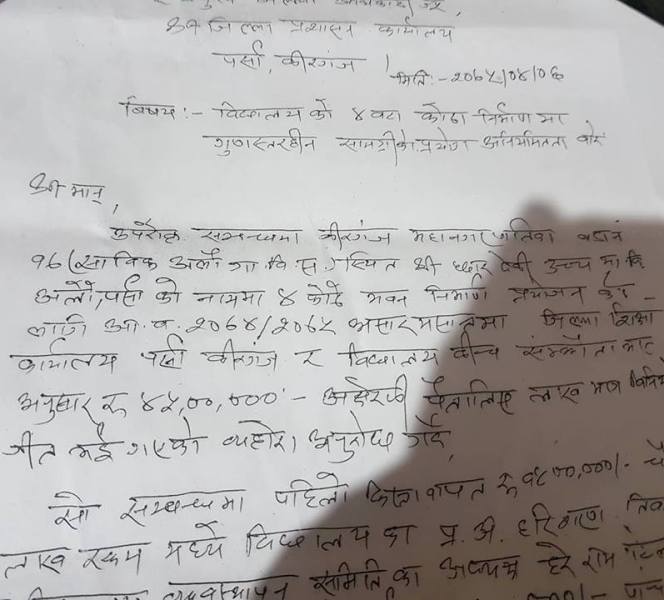 श्री जिल्ला प्रशासन कार्यालय
पर्सा, वीरगंज ।
मिति:- २०७५/०४/०६
बिषय :- विद्यालय को ४ वटा कोठा निर्माण मा
गुणस्तरहीन सामग्रीको प्रयोग अनियमितता बारे
श्री मान्,
उपरोक्त सम्बन्धमा वीरगंज महानगरपालिका वडा नं
१६ (साविक अलौं गा.वि.स.) स्थित श्री उच्च मा.वि
अलौं, पर्सा को नाममा ४ कोठे भवन निर्माण प्रयोजन
लागि आ.व. २०७४/२०७५ असार मसान्तमा जिल्ला शिक्षा
कार्यालय पर्सा वीरगंज र विद्यालय बीच संम्झौता
अनुसार रु ४५,००,०००।- अक्षेरुपी पैतालिस लाख मात्र
गर्दै,
सो सम्बन्धमा पहिलो किस्ता वापत रु
लाख रकम मध्ये विद्यालय का प्र.अ. हरिनारायण
व्यवस्थापन समिति का अध्यक्ष हरे राम